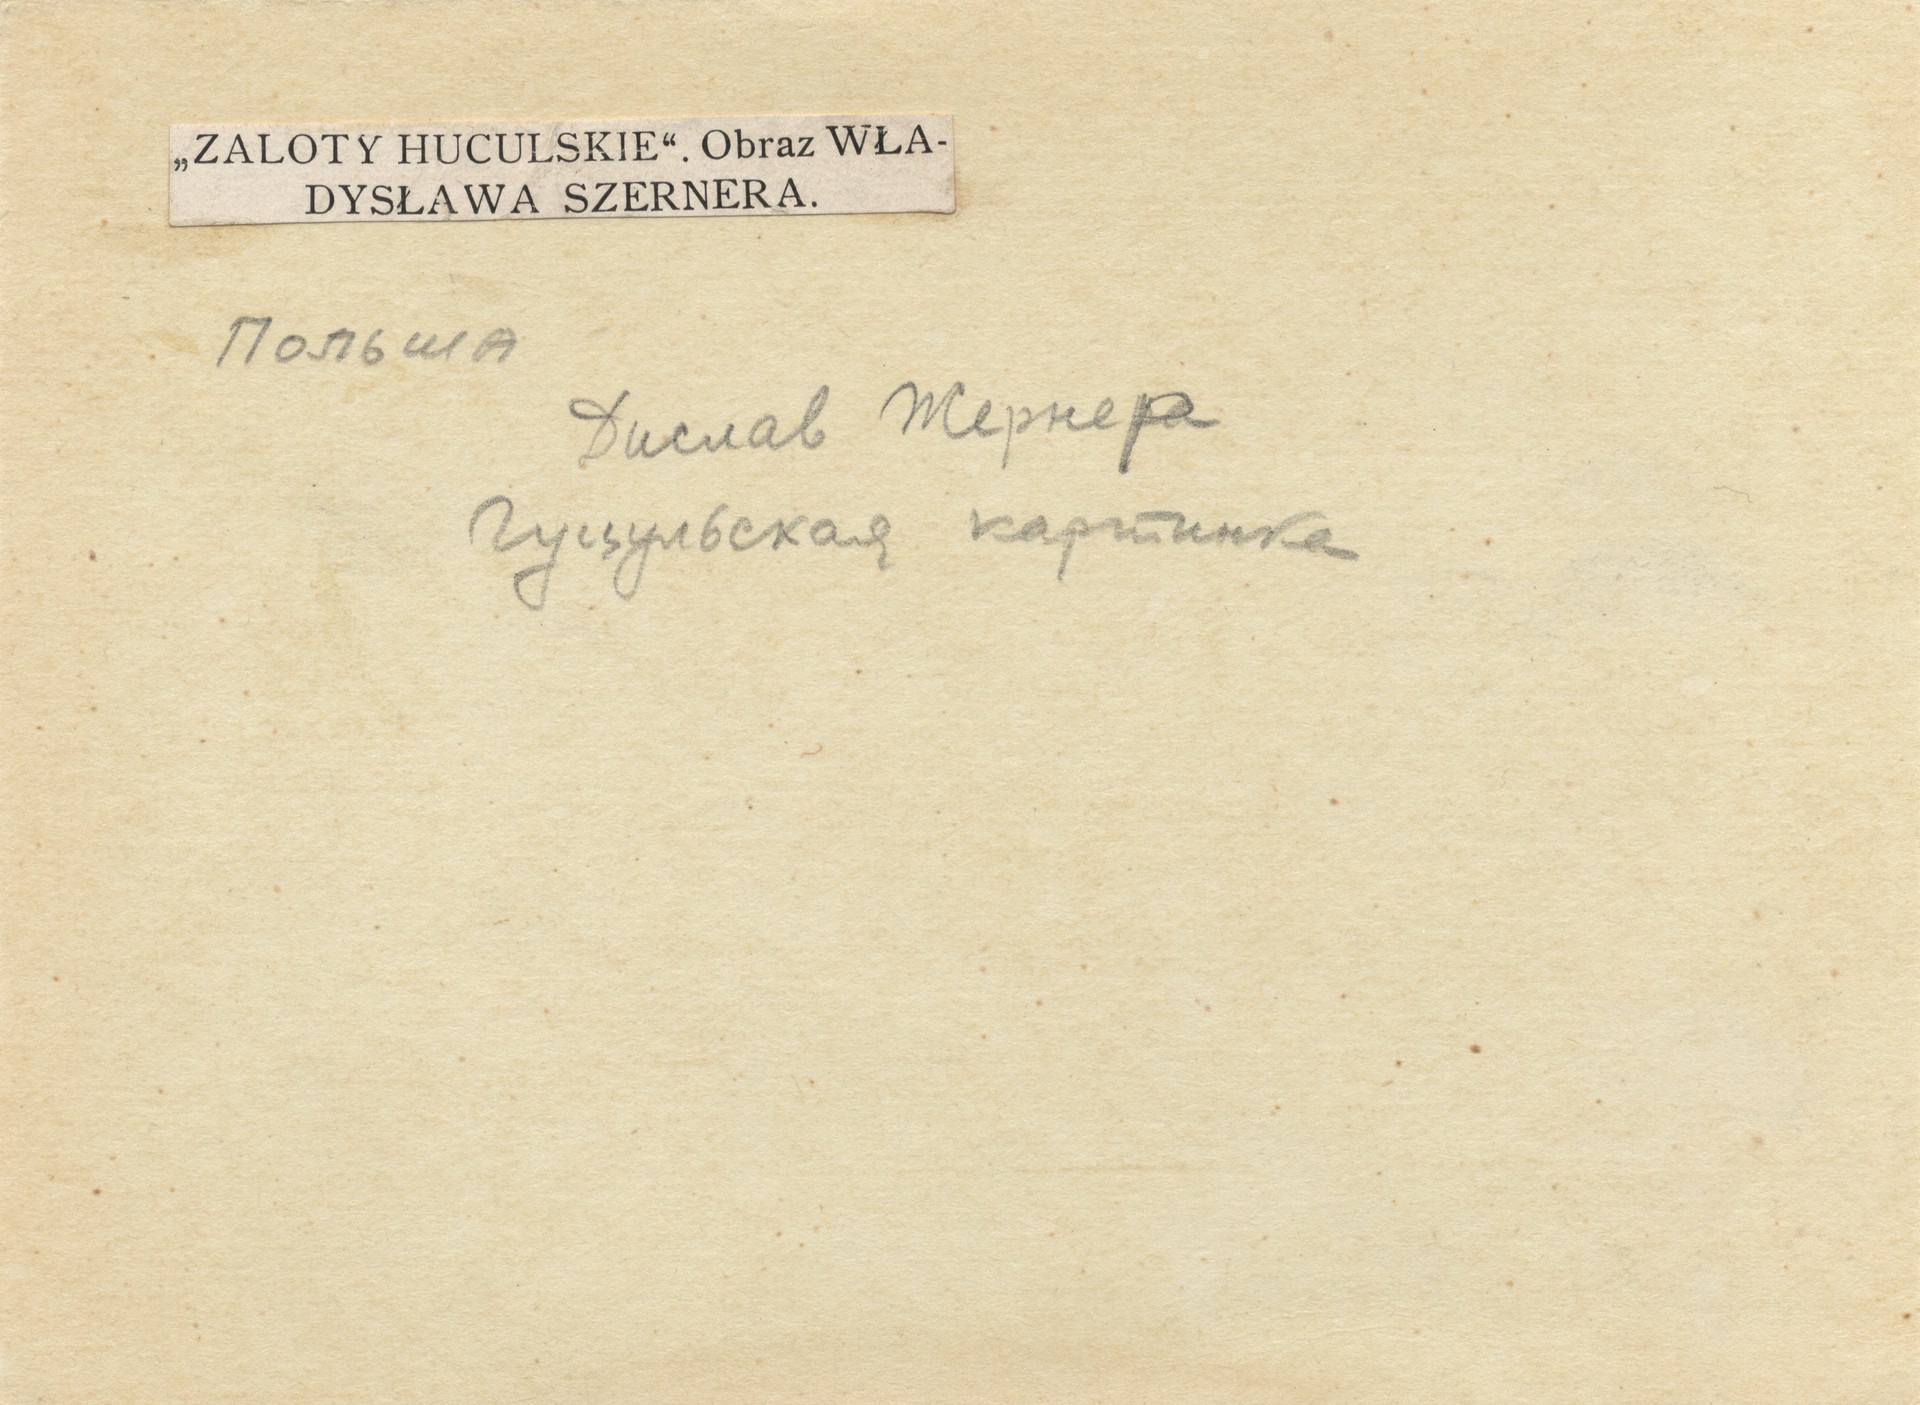 „ZALOTY HUCULSKIE“. Obraz WŁA-
DYSŁAWA SZERNERA.
Польша
Дислав Жернера
Гуцульская картинка